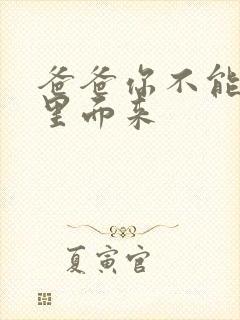 爸爸你不能
里而来
夏寅官